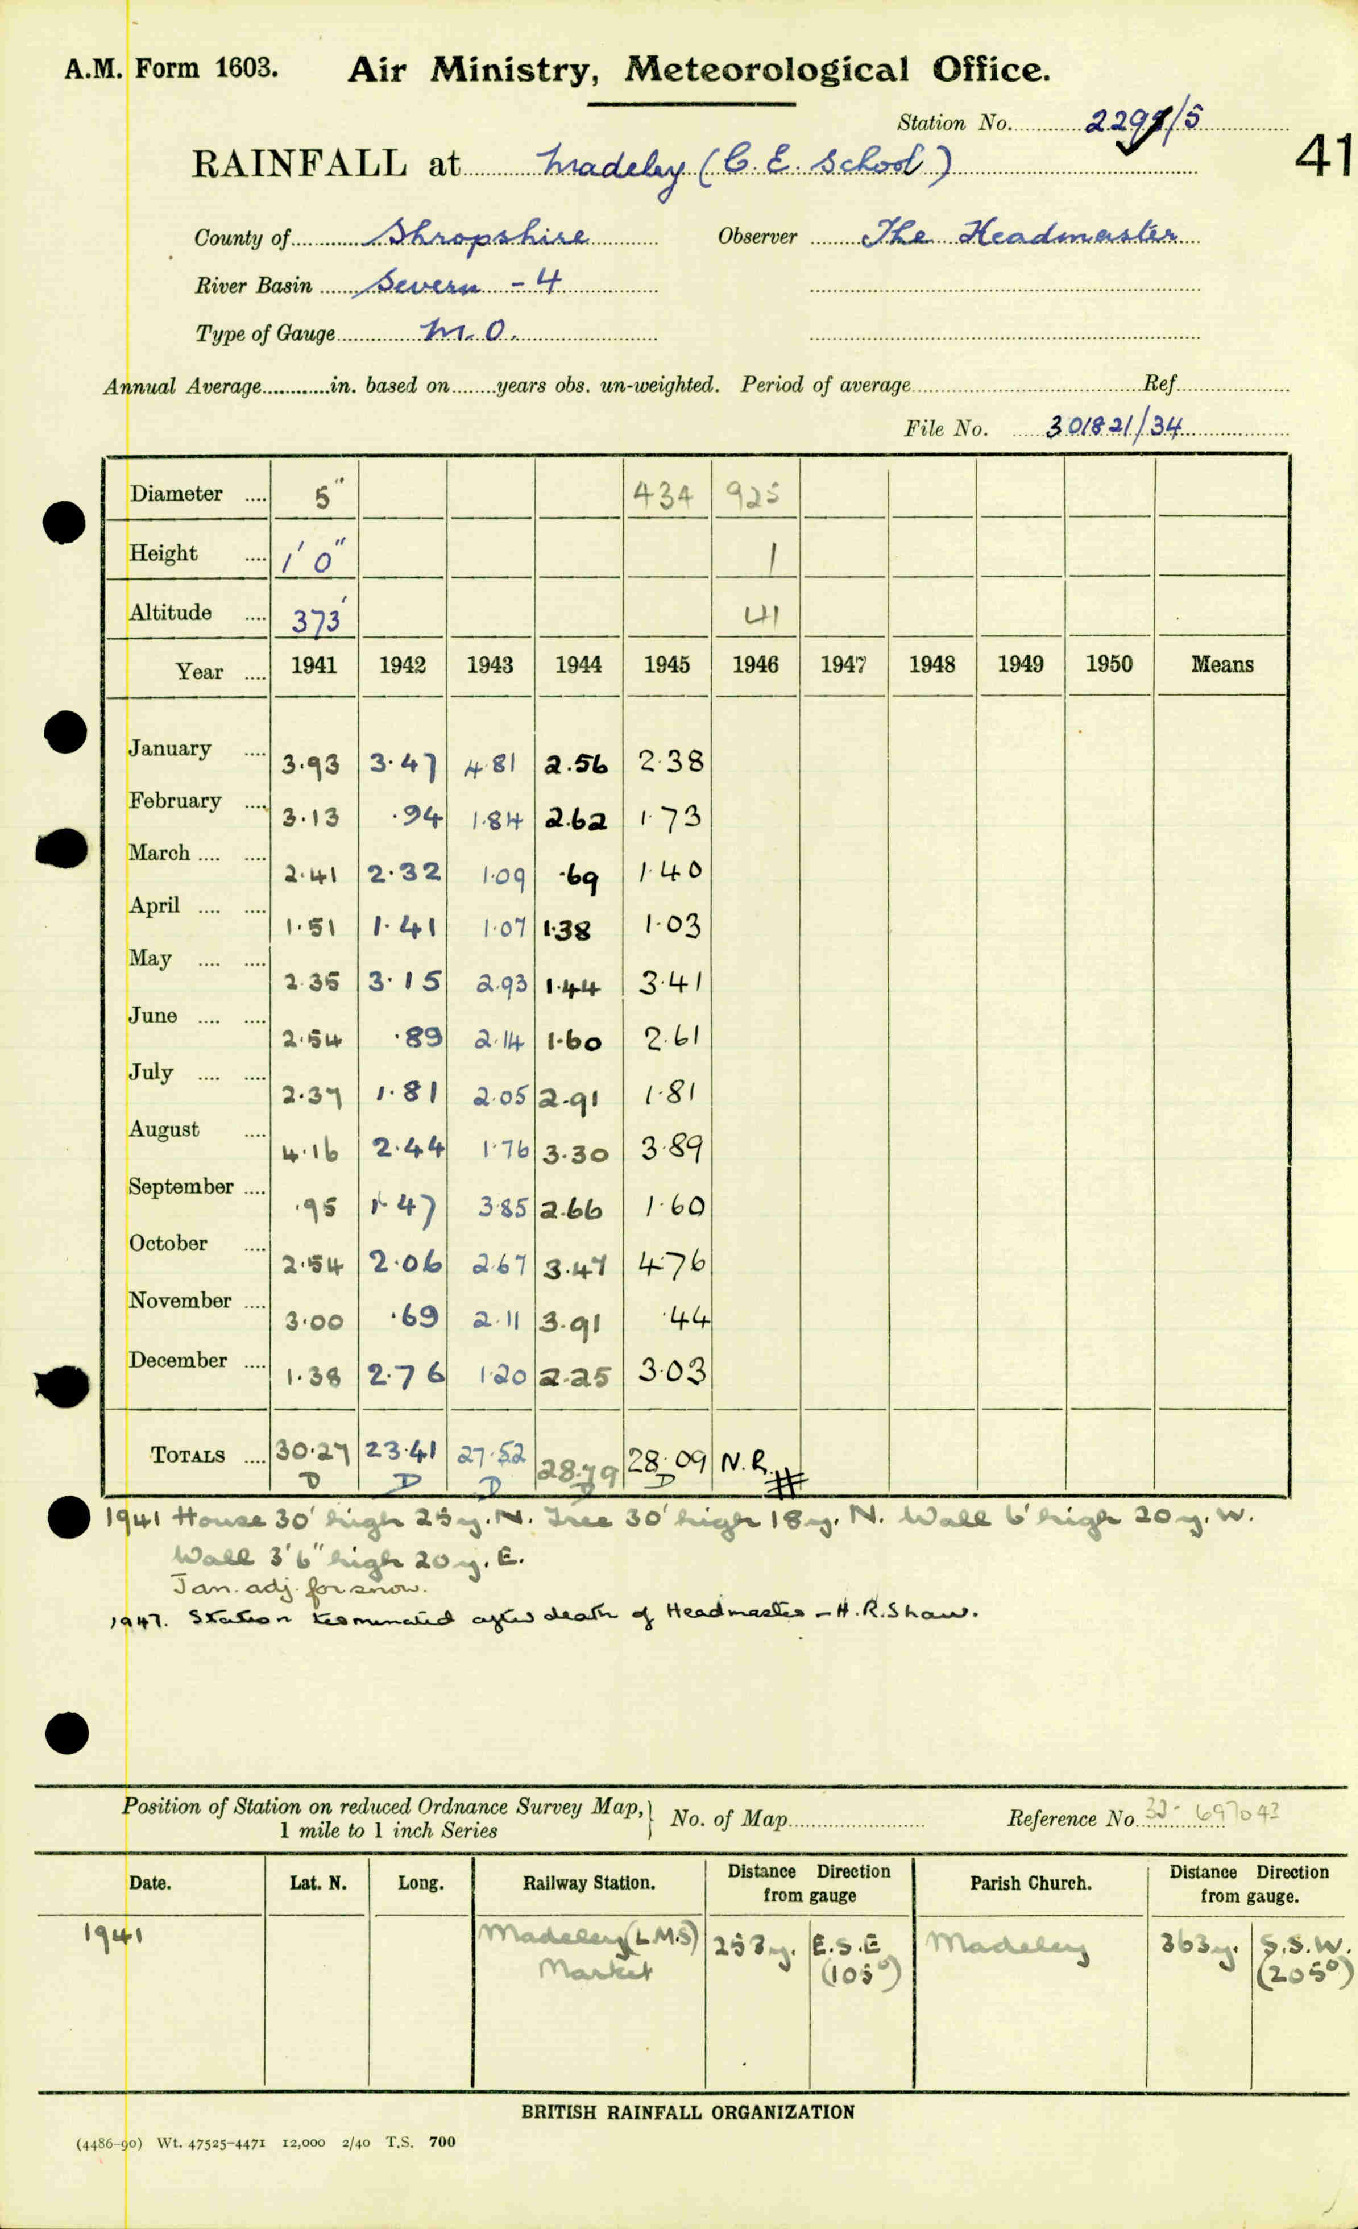 A.M. Form 1603. Air Ministry, Meteorological Office.
Station No. 2298/5
RAINFALL at Madeley (C. E. School) 41
County of Shropshire Observer The Headmaster
River Basin Severn - 4
Type of Gauge M.O.
Annual Average in. based on years obs. un-weighted. Period of average Ref.
File No. 301821/34
Diameter 5" 434 925
Height 1' 0" 1
Altitude 373' 41
Year 1941 1942 1943 1944 1945 1946 1947 1948 1949 1950 Means
January 3.93 3.47 4.81 2.56 2.38
February 3.13 .94 1.84 2.62 1.73
March 2.41 2.32 1.09 .69 1.40
April 1.51 1.41 1.07 1.38 1.03
May 2.35 3.15 2.93 1.44 3.41
June 2.54 .89 2.14 1.60 2.61
July 2.37 1.81 2.05 2.91 1.81
August 4.16 2.44 1.76 3.30 3.89
September .95 1.47 3.85 2.66 1.60
October 2.54 2.06 2.67 3.47 4.76
November 3.00 .69 2.11 3.91 .44
December 1.38 2.76 1.20 2.25 3.03
TOTALS 30.27 23.41 27.52 28.79 28.09 N.R. #
D D D D D
1941 House 30' high 25y. N. Tree 30' high 18y. N. Wall 6' high 20y. W.
Wall 3'6" high 20y. E.
Jan. adj. for snow.
1947. Station terminated after death of Headmaster - H.R.Shaw.
Position of Station on reduced Ordnance Survey Map, } No. of Map Reference No 33- 697043
1 mile to 1 inch Series
Date. Lat. N. Long. Railway Station. Distance Direction from gauge Parish Church. Distance Direction from gauge.
1941 Madeley (L.M.S) 253y. E.S.E Madeley 363y. S.S.W.
Market (105°) (205°)
BRITISH RAINFALL ORGANIZATION
(4486-90) Wt. 47525-4471 12,000 2/40 T.S. 700